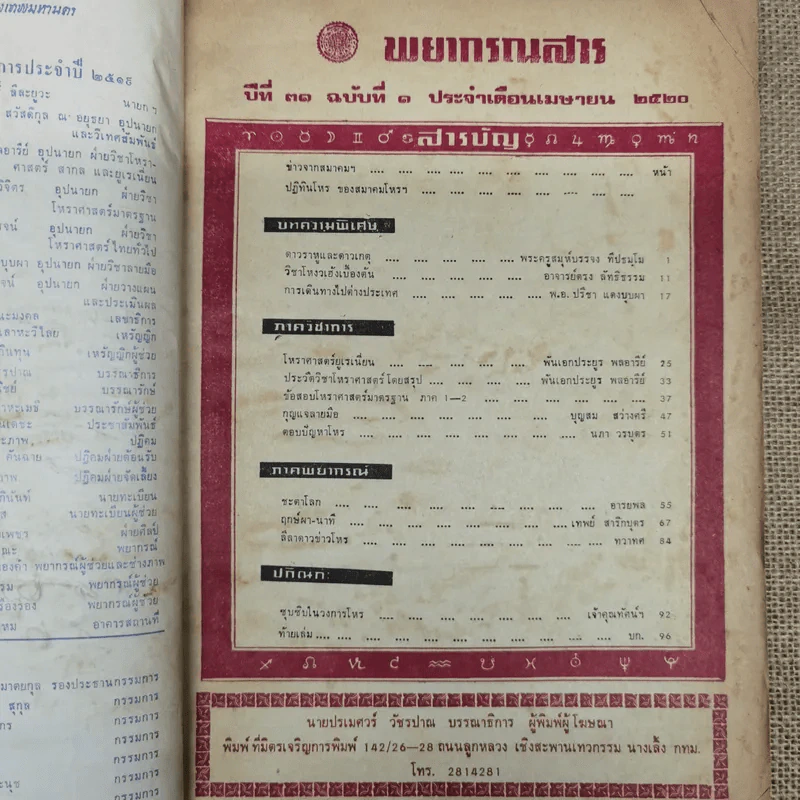 การประจำปี ๒๕๑๙
ลีละยูวะ นายก ฯ
สวัสดิกุล ณ อยุธยา อุปนายก
และวิเทศสัมพันธ์
อุปนายก ฝ่ายวิชาโหรา-
ศาสตร์ สากล และยูเรเนียน
วิจิตร อุปนายก ฝ่ายวิชา
โหราศาสตร์มาตรฐาน
อุปนายก ฝ่ายวิชา
โหราศาสตร์ไทยทั่วไป
บุบผา อุปนายก ฝ่ายวิชาลายมือ
อุปนายก ฝ่ายวางแผน
และประเมินผล
เลขาธิการ
เหรัญญิก
เหรัญญิกผู้ช่วย
บรรณาธิการ
บรรณารักษ์
บรรณารักษ์ผู้ช่วย
ประชาสัมพันธ์
ปฏิคม
คันฉาย ปฏิคมฝ่ายต้อนรับ
ปฏิคมฝ่ายจัดเลี้ยง
นายทะเบียน
นายทะเบียนผู้ช่วย
ฝ่ายศิลป์
พยากรณ์
พยากรณ์ผู้ช่วยและช่างภาพ
พยากรณ์ผู้ช่วย
พยากรณ์ผู้ช่วย
อาคารสถานที่
รองประธานกรรมการ
สุกุล กรรมการ
กรรมการ
กรรมการ
กรรมการ
กรรมการ
กรรมการ
พยากรณสาร
ปีที่ ๓๑ ฉบับที่ ๑ ประจำเดือนเมษายน ๒๕๒๐
สารบัญ
ข่าวจากสมาคมฯ .... .... .... .... .... .... .... .... หน้า
ปฏิทินโหร ของสมาคมโหรฯ .... .... .... .... .... ....
บทความพิเศษ
ดาวราหูและดาวเกตุ .... .... .... .... .... พระครูสมุห์บรรจง ทีปธมฺโม 1
วิชาโหงวเฮ้งเบื้องต้น .... .... .... .... .... อาจารย์ตรง ลัทธิธรรม 11
การเดินทางไปต่างประเทศ .... .... .... .... .... พ.อ. ปรีชา แดงบุบผา 17
ภาควิชาการ
โหราศาสตร์ยูเรเนียน .... .... .... .... .... พันเอกประยูร พลอารีย์ 25
ประวัติวิชาโหราศาสตร์โดยสรุป .... .... .... .... พันเอกประยูร พลอารีย์ 33
ข้อสอบโหราศาสตร์มาตรฐาน ภาค 1—2 .... .... .... .... .... 37
กุญแจลายมือ .... .... .... .... .... .... บุญสม สว่างศรี 47
ตอบปัญหาโหร .... .... .... .... .... .... .... นภา วรบุตร 51
ภาคพยากรณ์
ชะตาโลก .... .... .... .... .... .... .... อารยพล 55
ฤกษ์ผา-นาที .... .... .... .... .... .... เทพย์ สาริกบุตร 67
ลีลาดาวข่าวโหร .... .... .... .... .... .... .... ทวาทศ 84
ปกิณกะ
ซุบซิบในวงการโหร .... .... .... .... .... .... เจ้าคุณทัศน์ฯ 92
ท้ายเล่ม .... .... .... .... .... .... .... .... บก. 96
นายปรเมศวร์ วัชรปาณ บรรณาธิการ ผู้พิมพ์ผู้โฆษณา
พิมพ์ที่มิตรเจริญการพิมพ์ 142/26—28 ถนนลูกหลวง เชิงสะพานเทวกรรม นางเลิ้ง กทม.
โทร. 2814281